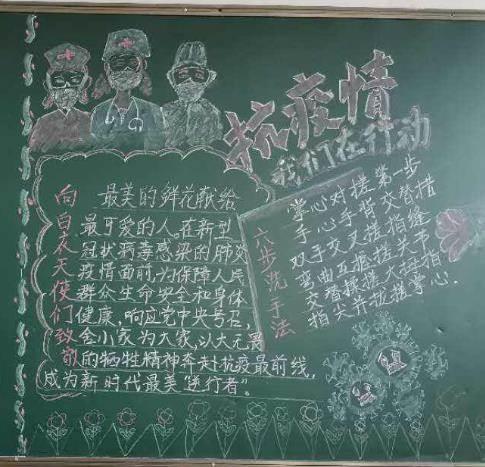 抗疫情
我们在行动
向白衣天使们致敬
最美的鲜花献给
最可爱的人。在新型
冠状病毒感染的肺炎
疫情面前,为保障人民
群众生命安全和身体
健康,响应党中央号召,
舍小家为大家,以大无畏
的牺牲精神奔赴抗疫最前线,
成为新时代最美"逆行者"。
六步洗手法
掌心对搓第一步
手心手背交替搓
双手交叉搓指缝
弯曲互握搓关节
交替揉搓大拇指
指尖并拢搓掌心.